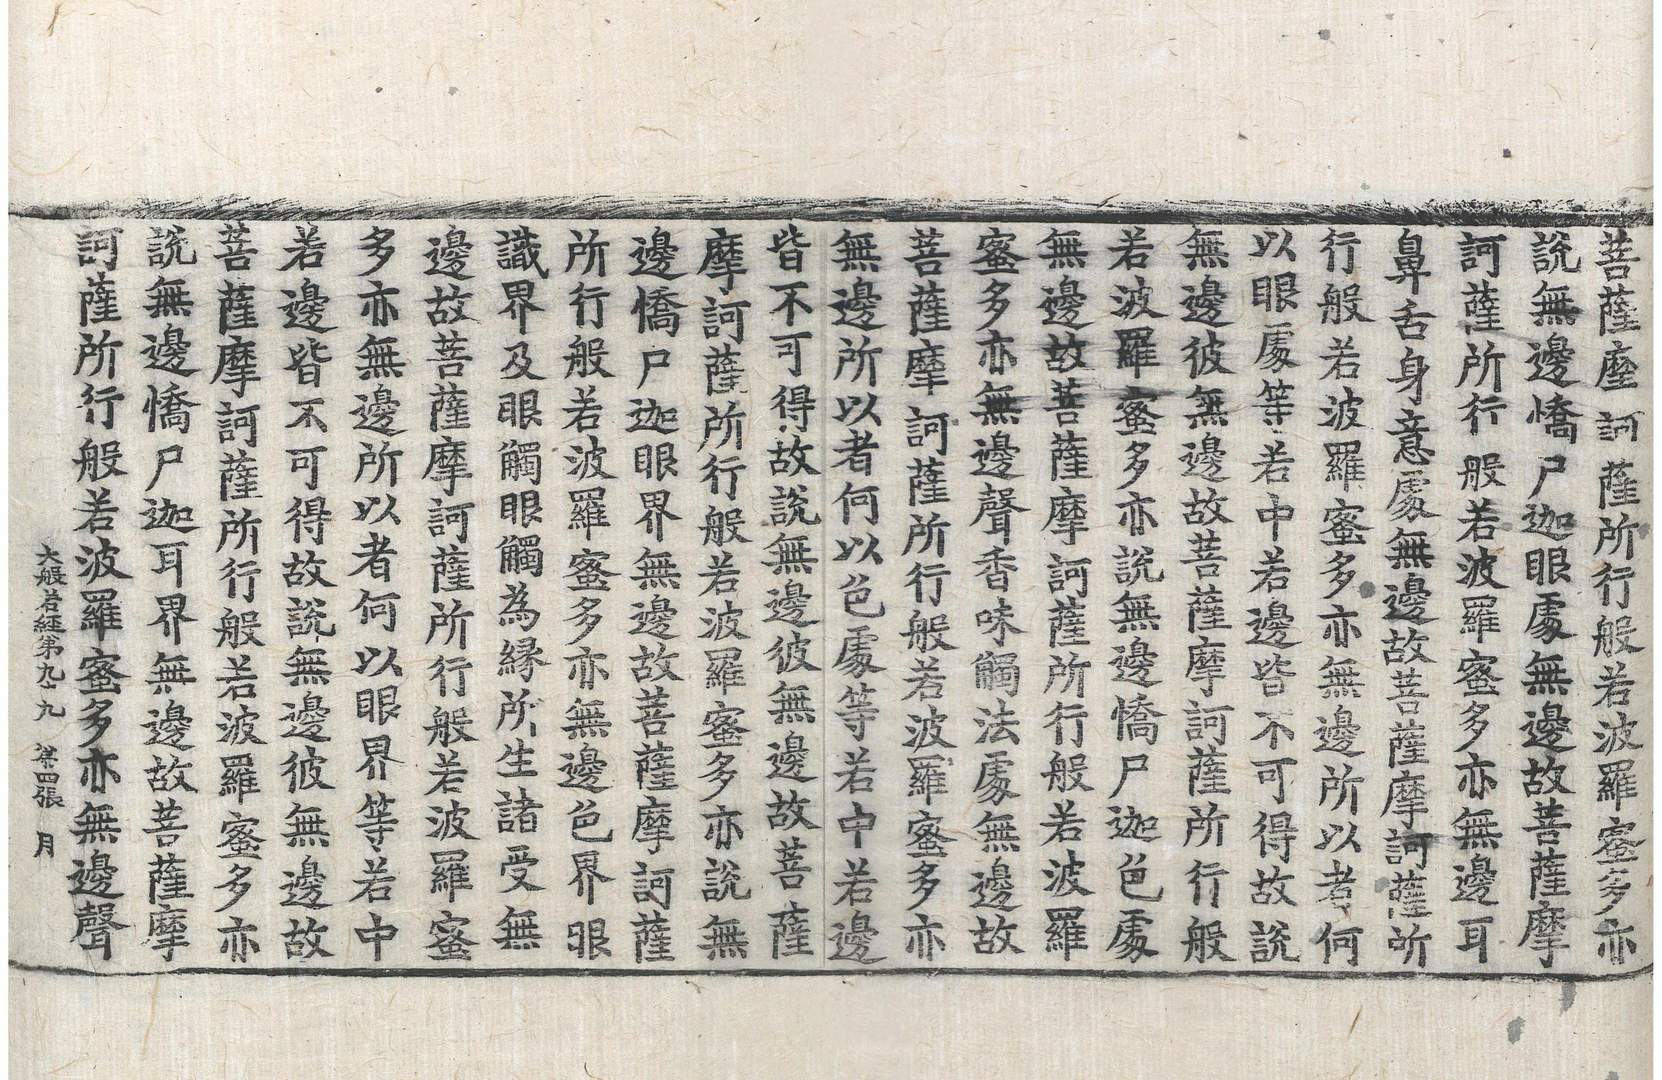 菩薩摩訶薩所行般若波羅蜜多亦
說無邊憍尸迦眼處無邊故菩薩摩
訶薩所行般若波羅蜜多亦無邊耳
鼻舌身意處無邊故菩薩摩訶薩所
行般若波羅蜜多亦無邊所以者何
以眼處等若中若邊皆不可得故說
無邊彼無邊故菩薩摩訶薩所行般
若波羅蜜多亦說無邊憍尸迦色處
無邊故菩薩摩訶薩所行般若波羅
蜜多亦無邊聲香味觸法處無邊故
菩薩摩訶薩所行般若波羅蜜多亦
無邊所以者何以色處等若中若邊
皆不可得故說無邊彼無邊故菩薩
摩訶薩所行般若波羅蜜多亦說無
邊憍尸迦眼界無邊故菩薩摩訶薩
所行般若波羅蜜多亦無邊色界眼
識界及眼觸眼觸為緣所生諸受無
邊故菩薩摩訶薩所行般若波羅蜜
多亦無邊所以者何以眼界等若中
若邊皆不可得故說無邊彼無邊故
菩薩摩訶薩所行般若波羅蜜多亦
說無邊憍尸迦耳界無邊故菩薩摩
訶薩所行般若波羅蜜多亦無邊聲
大般若經第九十九 第四張 月